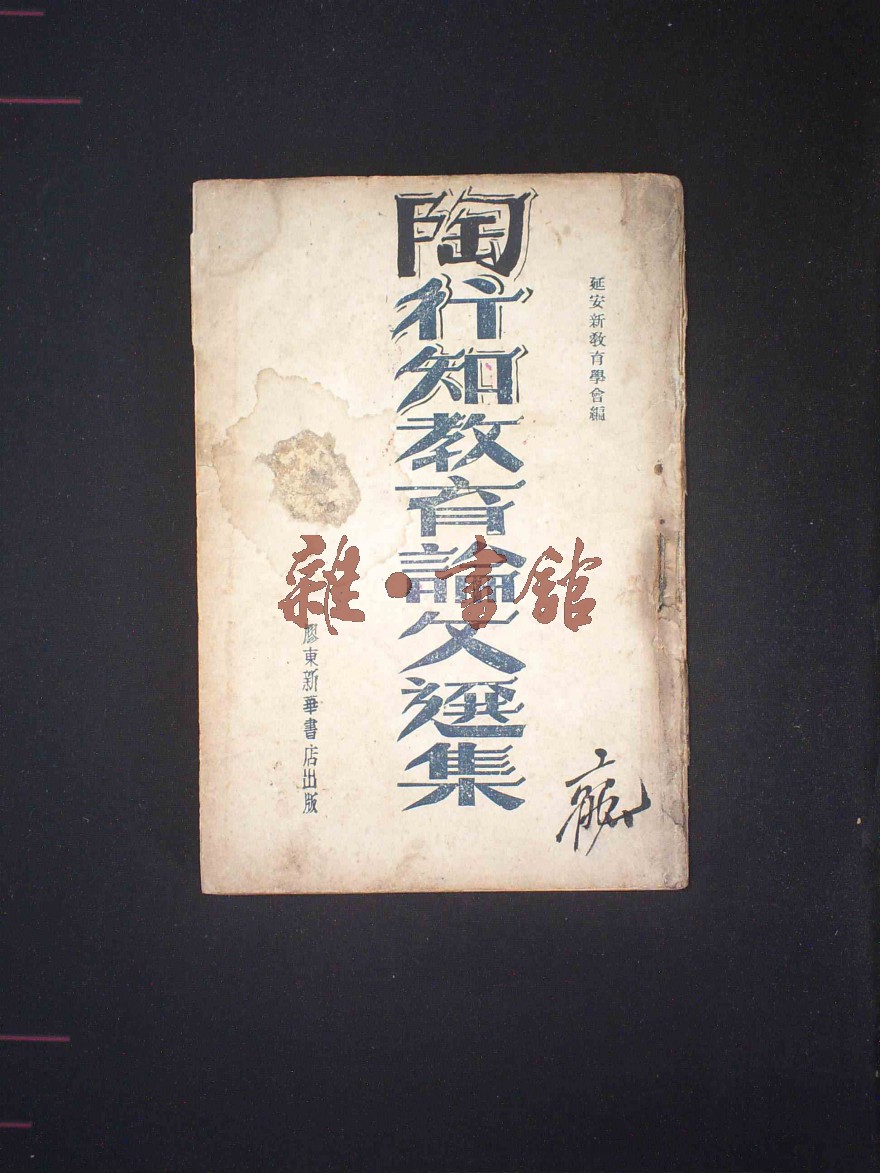 延安新教育學會編
陶行知教育論文選集
膠東新華書店出版
雜·書館